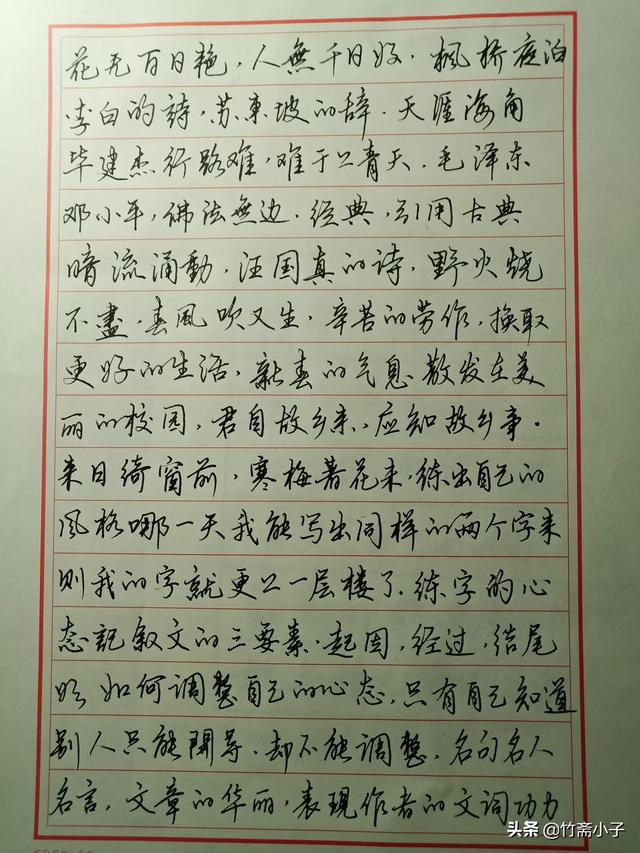 花无百日艳，人無千日好．枫桥夜泊
李白的詩，苏東坡的辞．天涯海角
毕建杰行路难，难于上青天．毛泽东
邓小平，佛法無边．经典，引用古典
暗流涌動，汪国真的诗，野火烧
不盡．春風吹又生，辛苦的劳作，换取
更好的生活，新春的气息散发在美
丽的校园，君自故乡来，应知故乡事．
来日绮窗前，寒梅著花未，练出自己的
风格哪一天我能写出同样的两个字来
则我的字就更上一层楼了．练字的心
态記叙文的三要素．起因，经过，结尾
如何調整自己的心态，只有自己知道
别人只能開导．却不能調整，名句名人
名言，文章的华丽，表現作者的文词功力
头条@竹斋小子